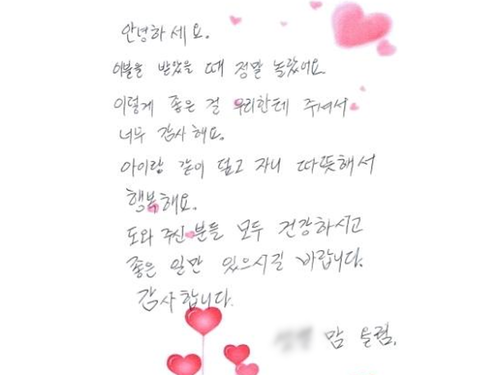 안녕하세요.
이불을 받았을 때 정말 놀랐어요.
이렇게 좋은 걸 우리한테 주셔서
너무 감사해요.
아이랑 같이 덮고 자니 따뜻해서
행복해요.
도와 주신 분들 모두 건강하시고
좋은 일만 있으시길 바랍니다.
감사합니다.
맘 올림.